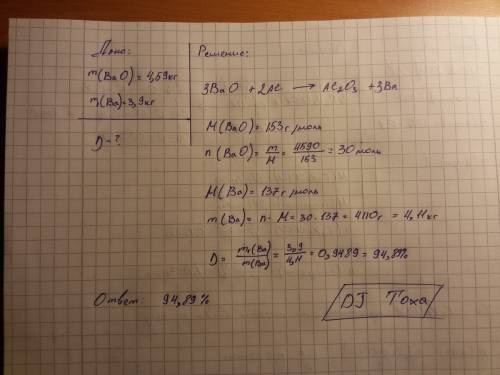 Дано:
m(BaO) = 4,59кг
m₁(Ba) = 3,9кг
D - ?
Решение:
3BaO + 2Al ⟶ Al₂O₃ + 3Ba
M(BaO) = 153г/моль
n(BaO) = m/M = 4590/153 = 30 моль
M(Ba) = 137г/моль
m(Ba) = n · M = 30 · 137 = 4110г = 4,11кг
D = m₁(Ba)/m(Ba) = 3,9/4,11 = 0,9489 = 94,89%
Ответ: 94,89%
DJ Тоха